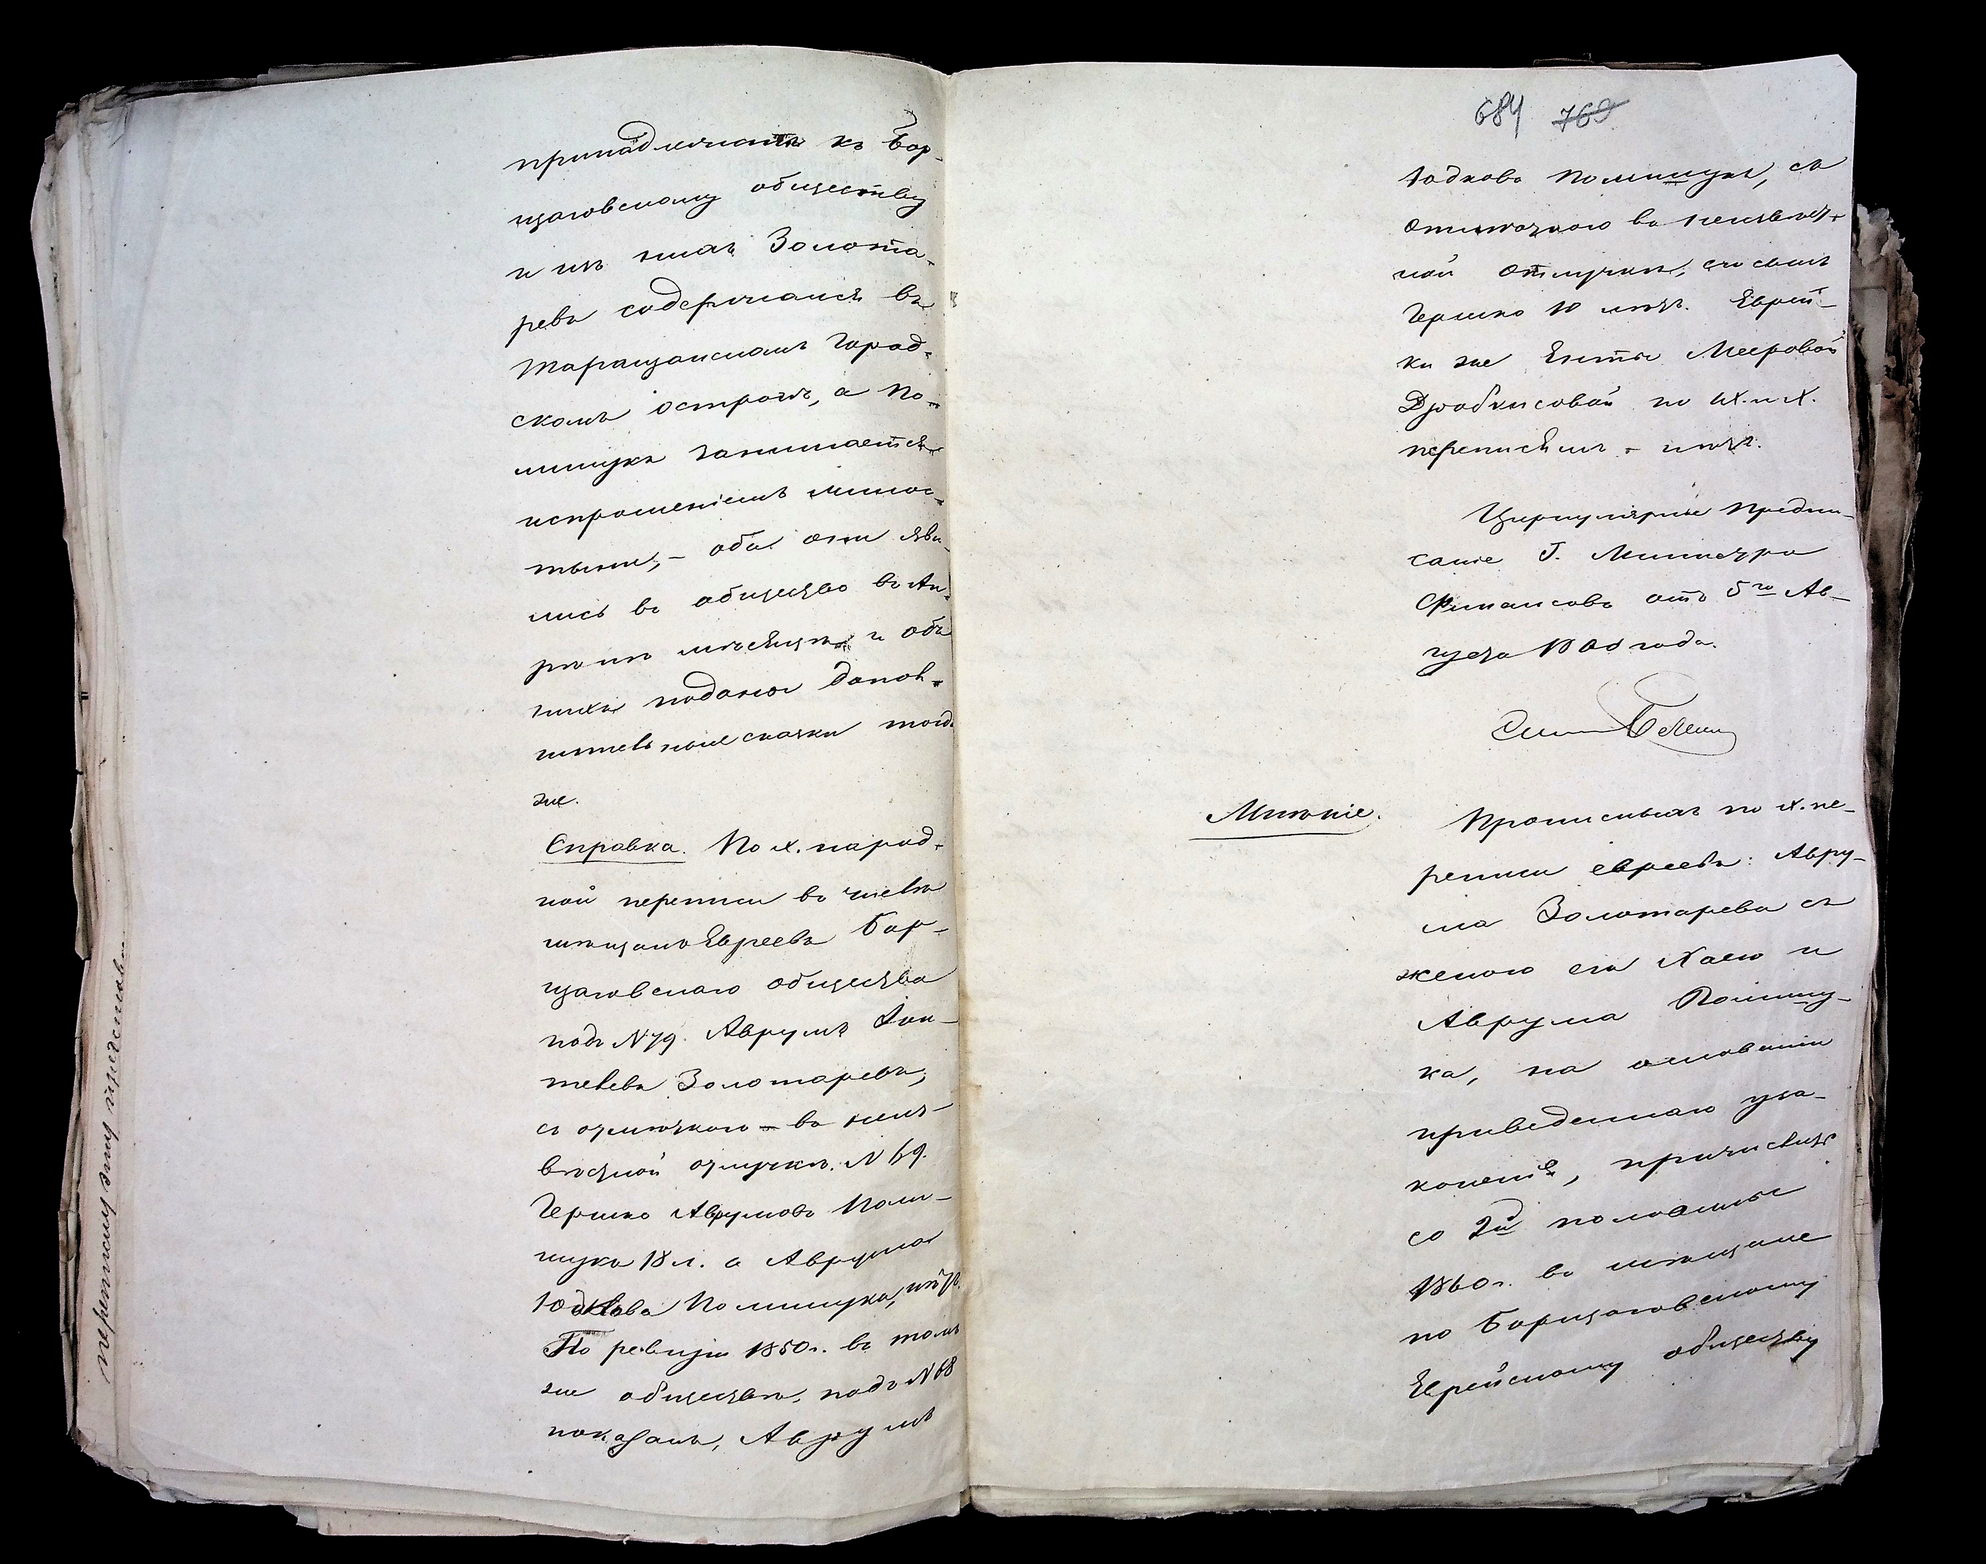 принадлежатъ къ Бор-
щаговскому обществу
и изъ нихъ Золота-
ревъ содержался въ
Таращанскомъ Город-
скомъ острогѣ, а По-
лищукъ занимается
испрошеніемъ милос-
тыни, – оба они яви-
лись въ общество въ Ап-
рѣлѣ мѣсяцѣ и объ
нихъ поданы допол-
нительные сказки тогда
же.
Справка. По X. народ-
ной переписи въ числѣ
мѣщанъ Евреевъ Бор-
щаговскаго общества
подъ N 79. Аврумъ
Золотаревъ,
съ отмѣткою – въ неиз-
вѣстной отлучкѣ. N 69.
Гершко Аврумовъ Поли-
щукъ 18 л. а Аврума
Юдкова Полищука, нѣтъ.
По ревизіи 1850 г. въ томъ
же обществѣ, подъ N 68
показанъ, Аврумъ
переписку эту представ
684 769
Юдковъ Полищукъ, съ
отмѣткою въ неизвѣст-
ной отлучкѣ, сынъ
Гершко 10 лѣтъ. Еврей-
ки же Енты Мееровой
по IX. и X.
переписямъ – нѣтъ.
Циркулярное предпи-
саніе Г. Министра
Финансовъ отъ 5го Ав-
густа 1860 года.
Мнѣніе.
Прописныхъ по X. пе-
реписи евреевъ: Авру-
ма Золотарева съ
женою его Хаею и
Аврума Полищу-
ка, на основаніи
приведеннаго уза-
коненія, причислить
со 2й половины
1860 г. въ мѣщане
по Борщаговскому
Еврейскому обществу